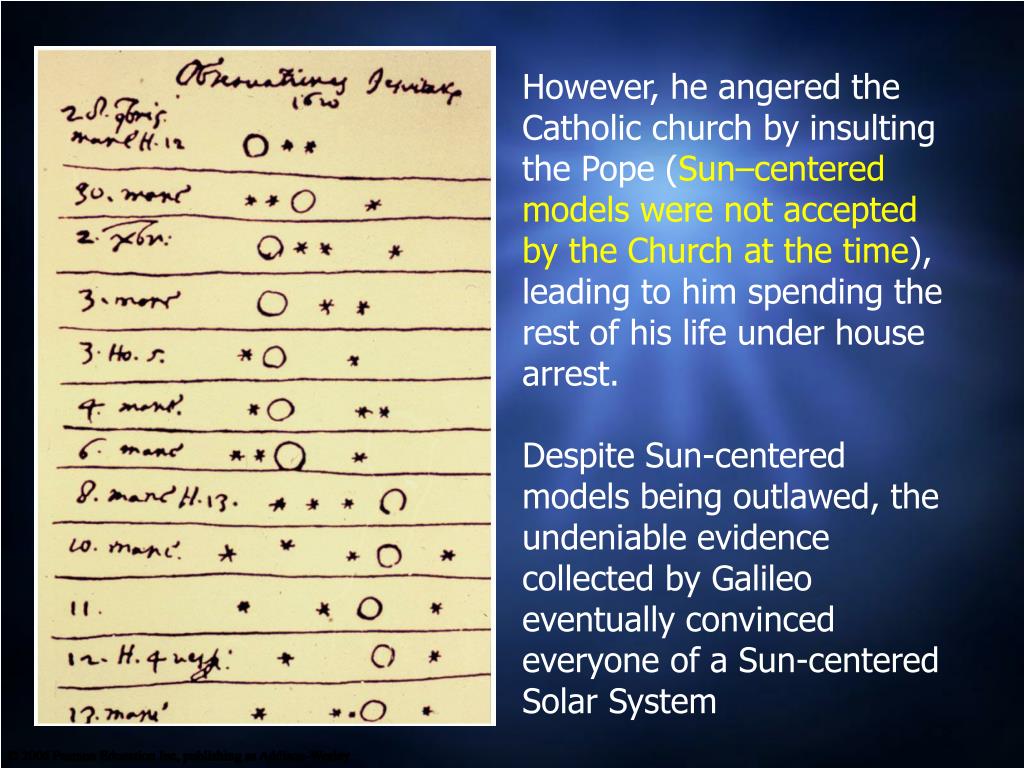 Observationes Jesuitarum
1610
2. S. 9bris.
mane H. 12
30. mane
2. xbri:
3. mane
3. Ho. 5.
4. mane.
6. mane
8. mane H. 13.
10. mane.
11.
12. H. 4
13. mane
However, he angered the
Catholic church by insulting
the Pope (Sun–centered
models were not accepted
by the Church at the time),
leading to him spending the
rest of his life under house
arrest.
Despite Sun-centered
models being outlawed, the
undeniable evidence
collected by Galileo
eventually convinced
everyone of a Sun-centered
Solar System
© 2006 Pearson Education Inc, publishing as Addison-Wesley